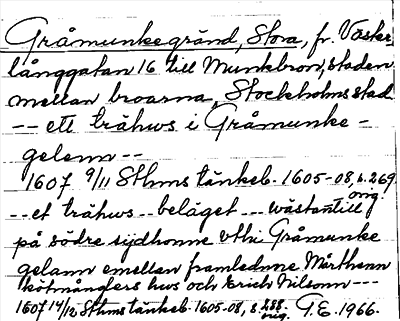 Gråmunkegränd, Stora, fr. Väster-
långgatan 16 till Munkbron, staden
mellan broarna, Stockholms stad
-- ett trähws i Gråmunke-
gelann --
1607 9/11 Sthms tänkeb. 1605-08, s. 269 orig.
-- et trähws -- beläget --- wästan till
på södre sijdhonne vthi Gråmunke
gelann emellan framlednone Mårthenn
kötmånglers hws och Erich Nilsonn ---
1607 14/12 Sthms tänkeb. 1605-08, s. 288 orig. G.E. 1966.